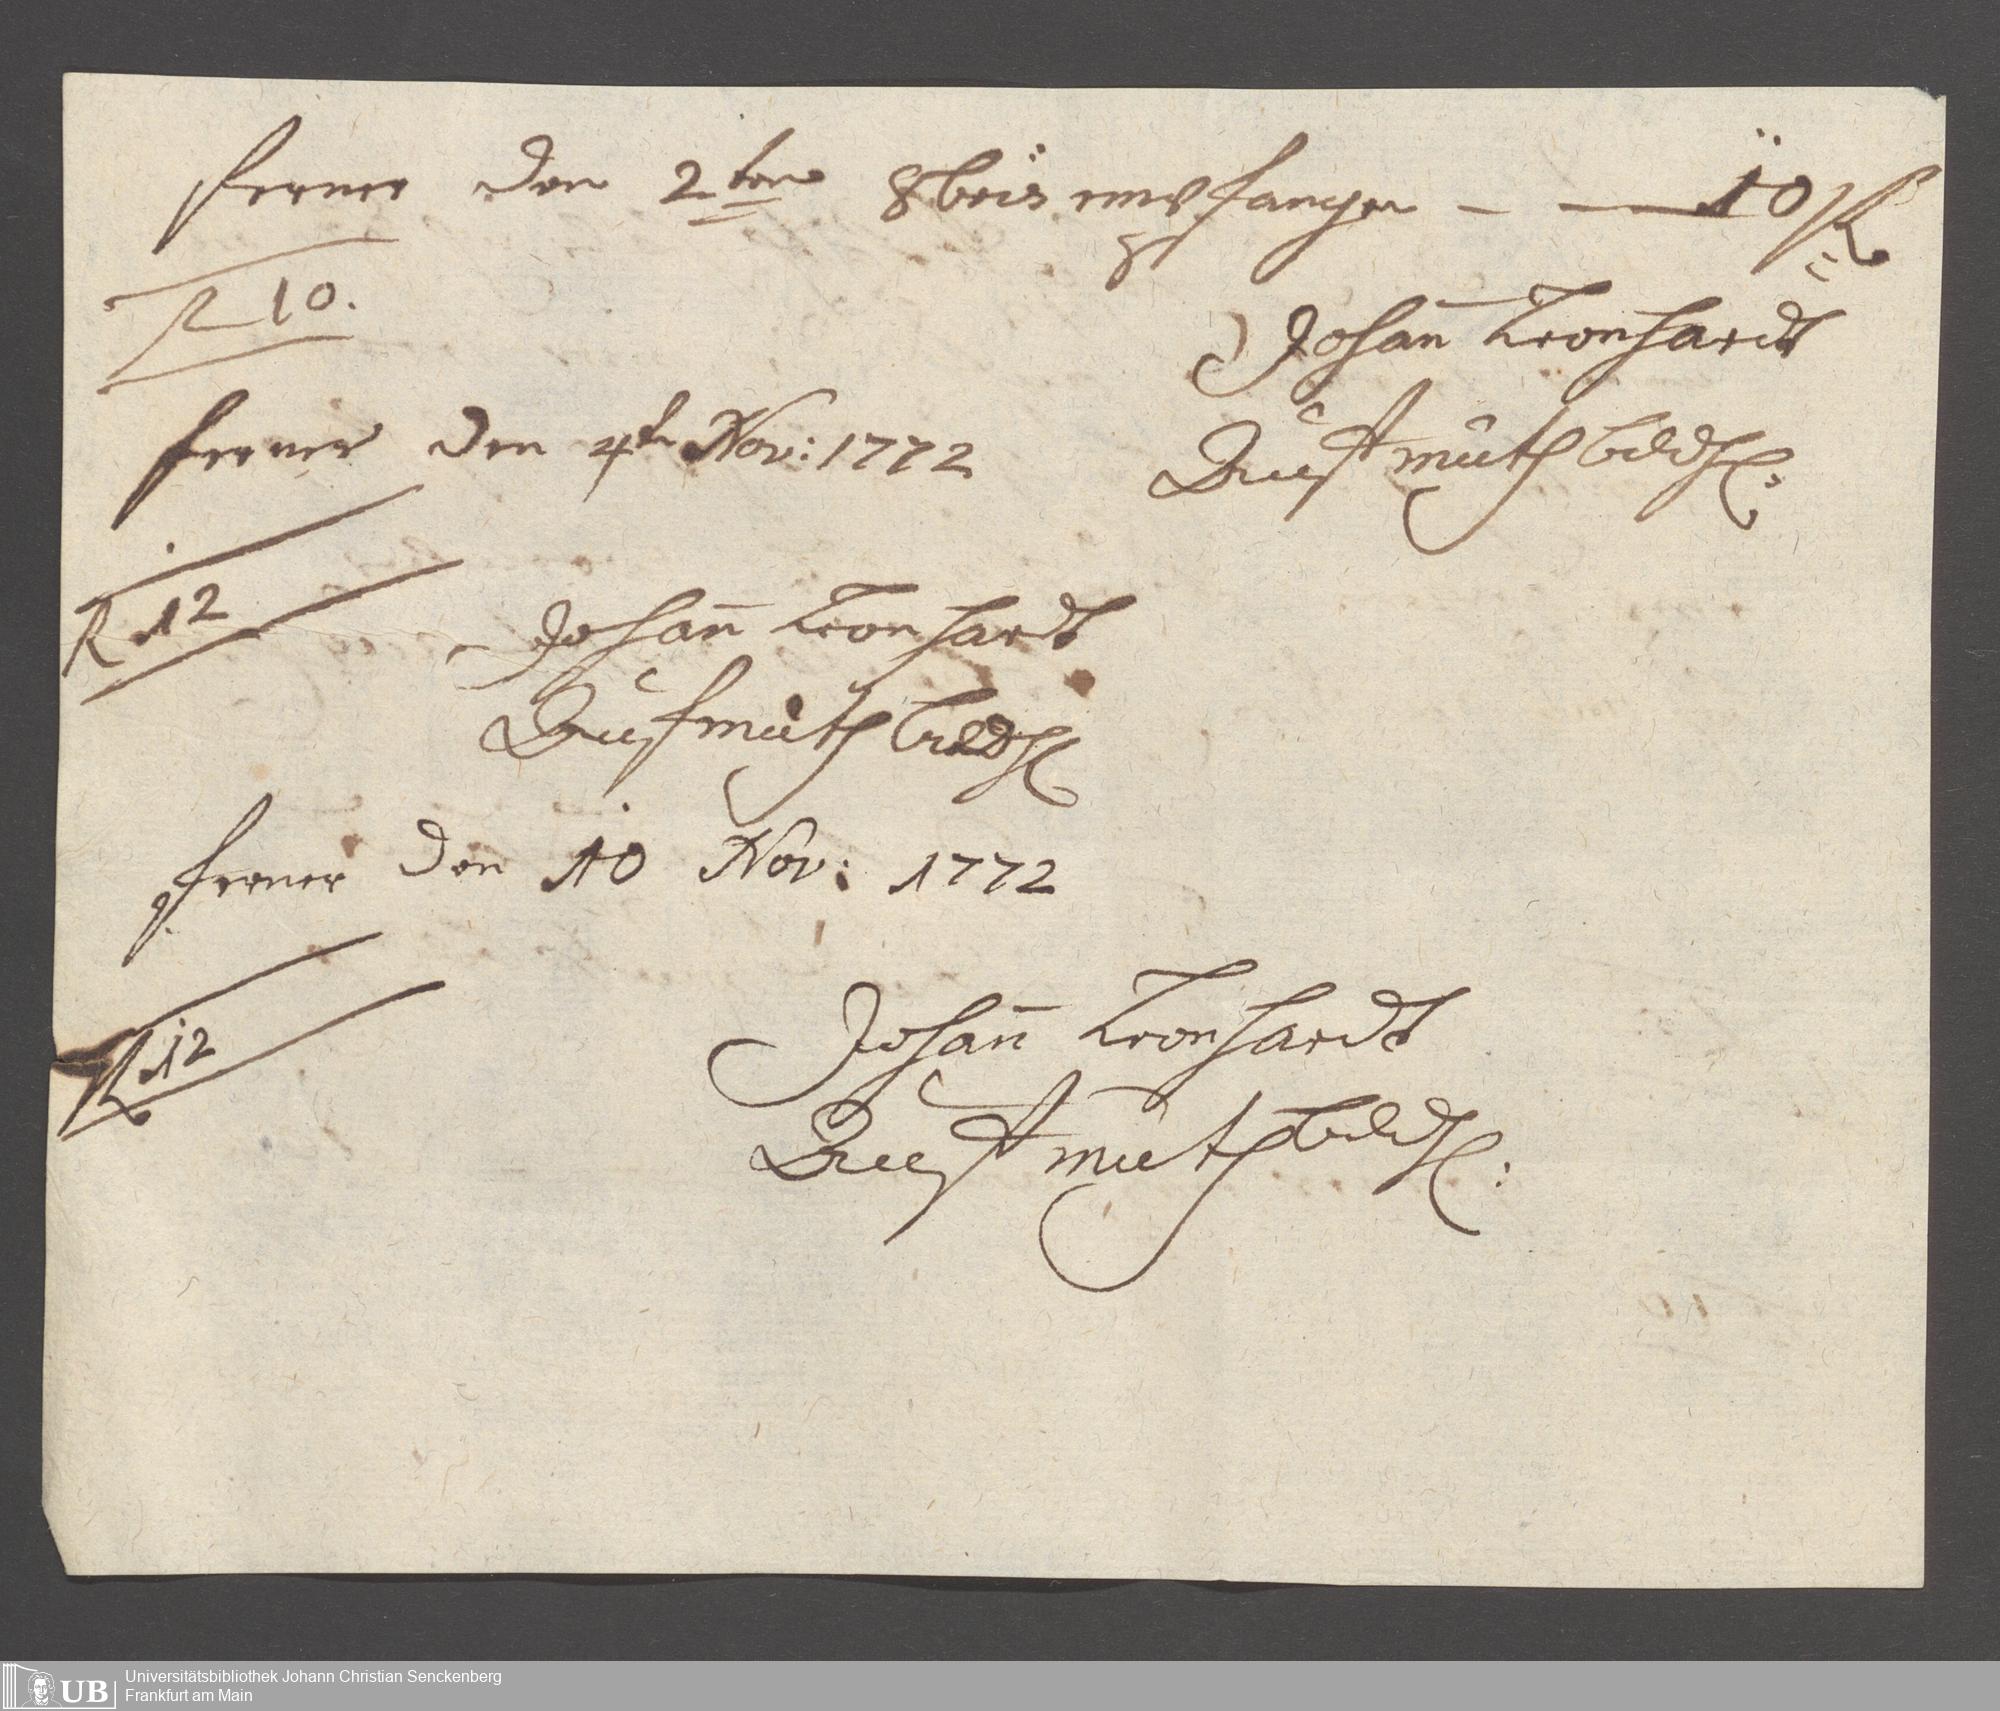 ferner den 2ten 8bris empfangen — — 10 R
R 10.
Johann Leonhardt
Aufmuth bildh:
ferner den 4te Nov: 1772
R 12
Johann Leonhardt
Aufmuth bildh
ferner den 10 Nov: 1772
R 12
Johann Leonhardt
Aufmuth bildh:
UB
Universitätsbibliothek Johann Christian Senckenberg
Frankfurt am Main